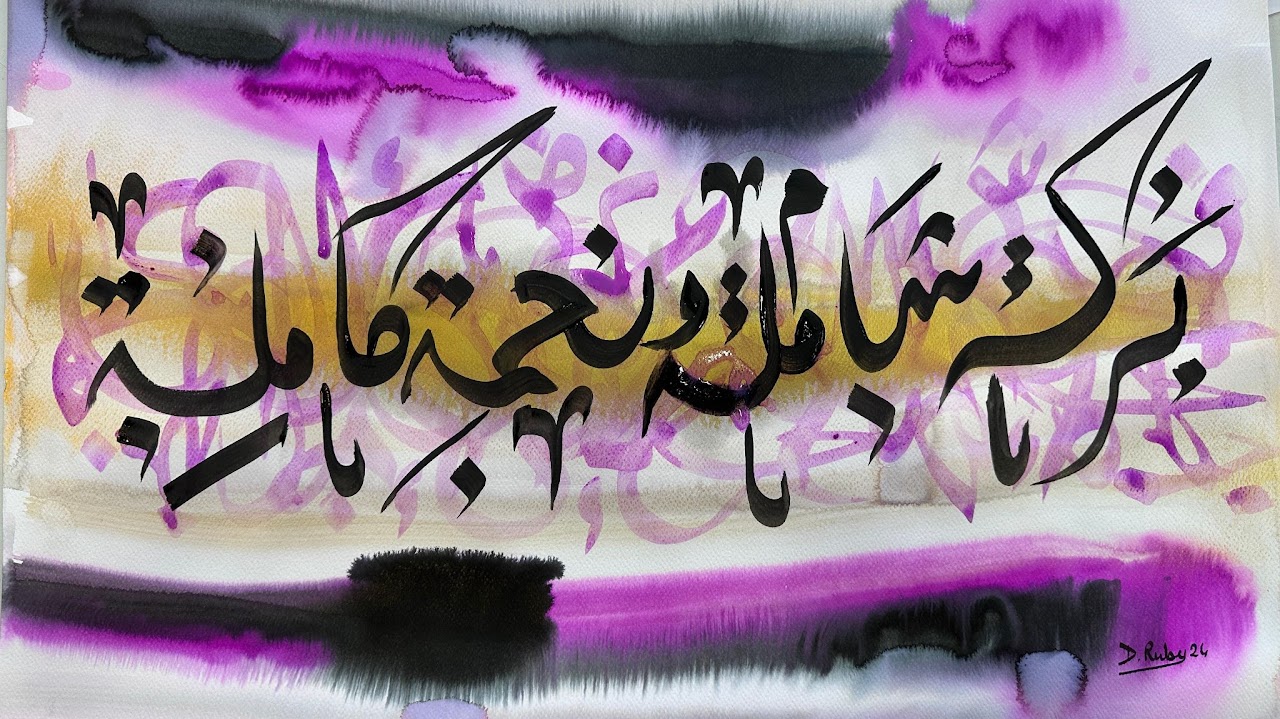 بركة شاملة ونعمة كاملة
D. Ruby 24